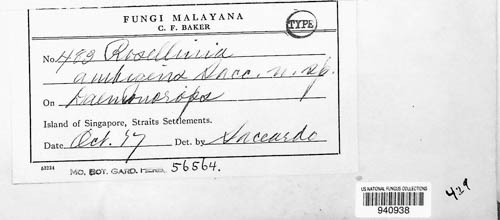 FUNGI MALAYANA
C. F. BAKER
TYPE
No. 482 Rosellinia
ambigens Sacc. n. sp.
On Daemonorops
Island of Singapore, Straits Settlements.
Date Oct. 17 Det. by Saccardo
63234
MO. BOT. GARD. HERB. 56564.
439
US NATIONAL FUNGUS COLLECTIONS
940938